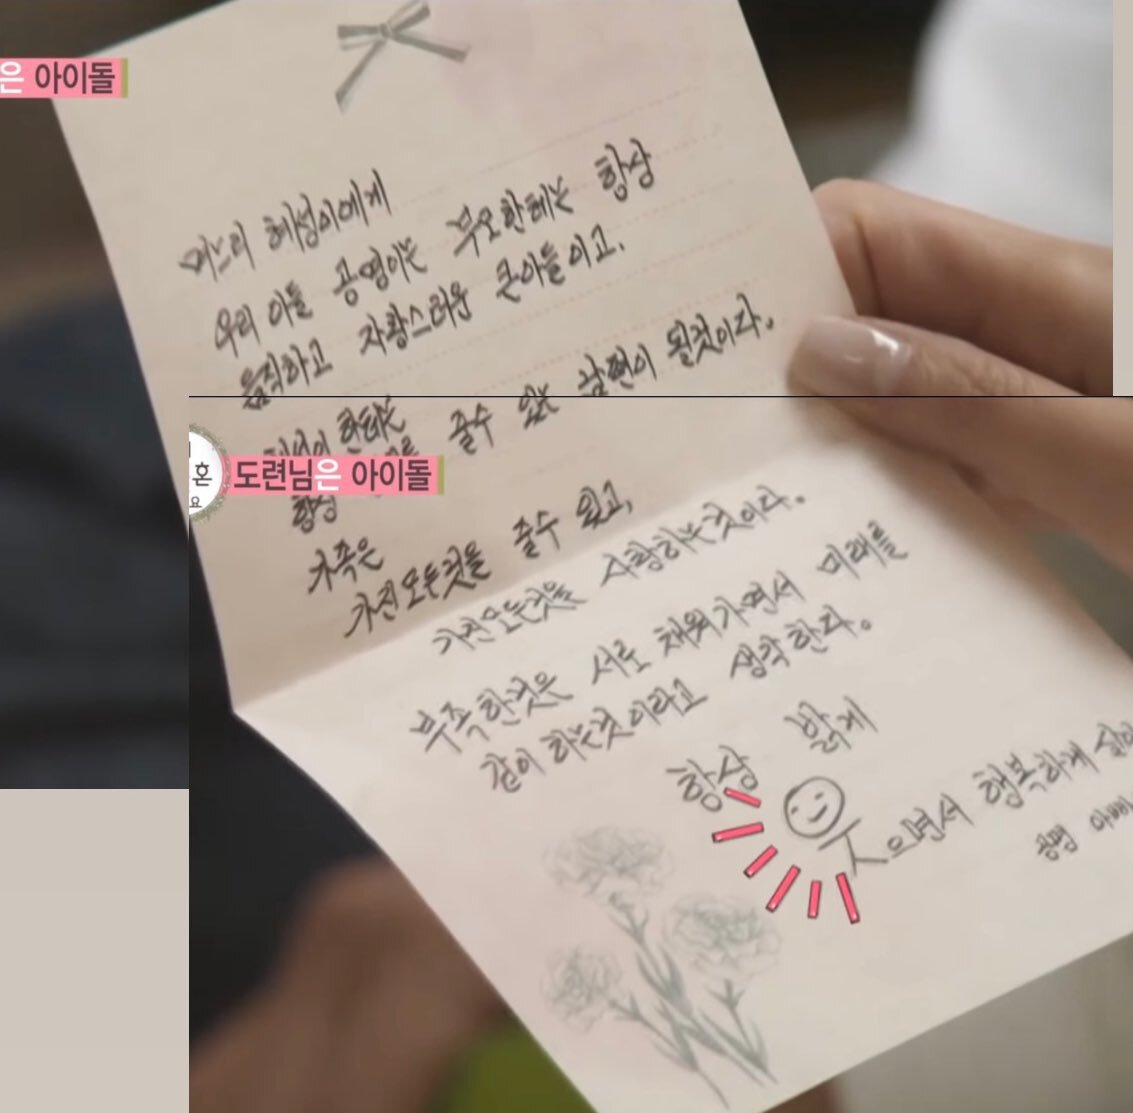 은 아이돌
며느리 혜성이에게
우리 아들 공명이는 부모한테는 항상
듬직하고 자랑스러운 큰아들이고.
한테는
항상 줄수 있는 남편이 될것이다.
혼
요
도련님은 아이돌
가족은
가진모든것을 줄수 있고,
가진모든것을 사랑하는것이다.
부족한것은 서로 채워가면서 미래를
같이 하는것이라고 생각한다.
항상 밝게
웃으면서 행복하게
공명 아빠